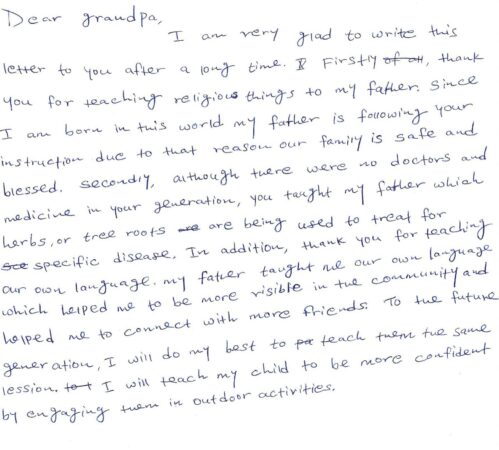 Dear grandpa,
I am very glad to write this
letter to you after a long time. I Firstly of all, thank
you for teaching religious things to my father. Since
I am born in this world my father is following your
instruction due to that reason our family is safe and
blessed. Secondly, although there were no doctors and
medicine in your generation, you taught my father which
herbs, or tree roots are being used to treat for
specific disease. In addition, thank you for teaching
our own language. my father taught me our own language
which helped me to be more visible in the community and
helped me to connect with more friends. To the future
generation, I will do my best to teach them the same
lession. I will teach my child to be more confident
by engaging them in outdoor activities.